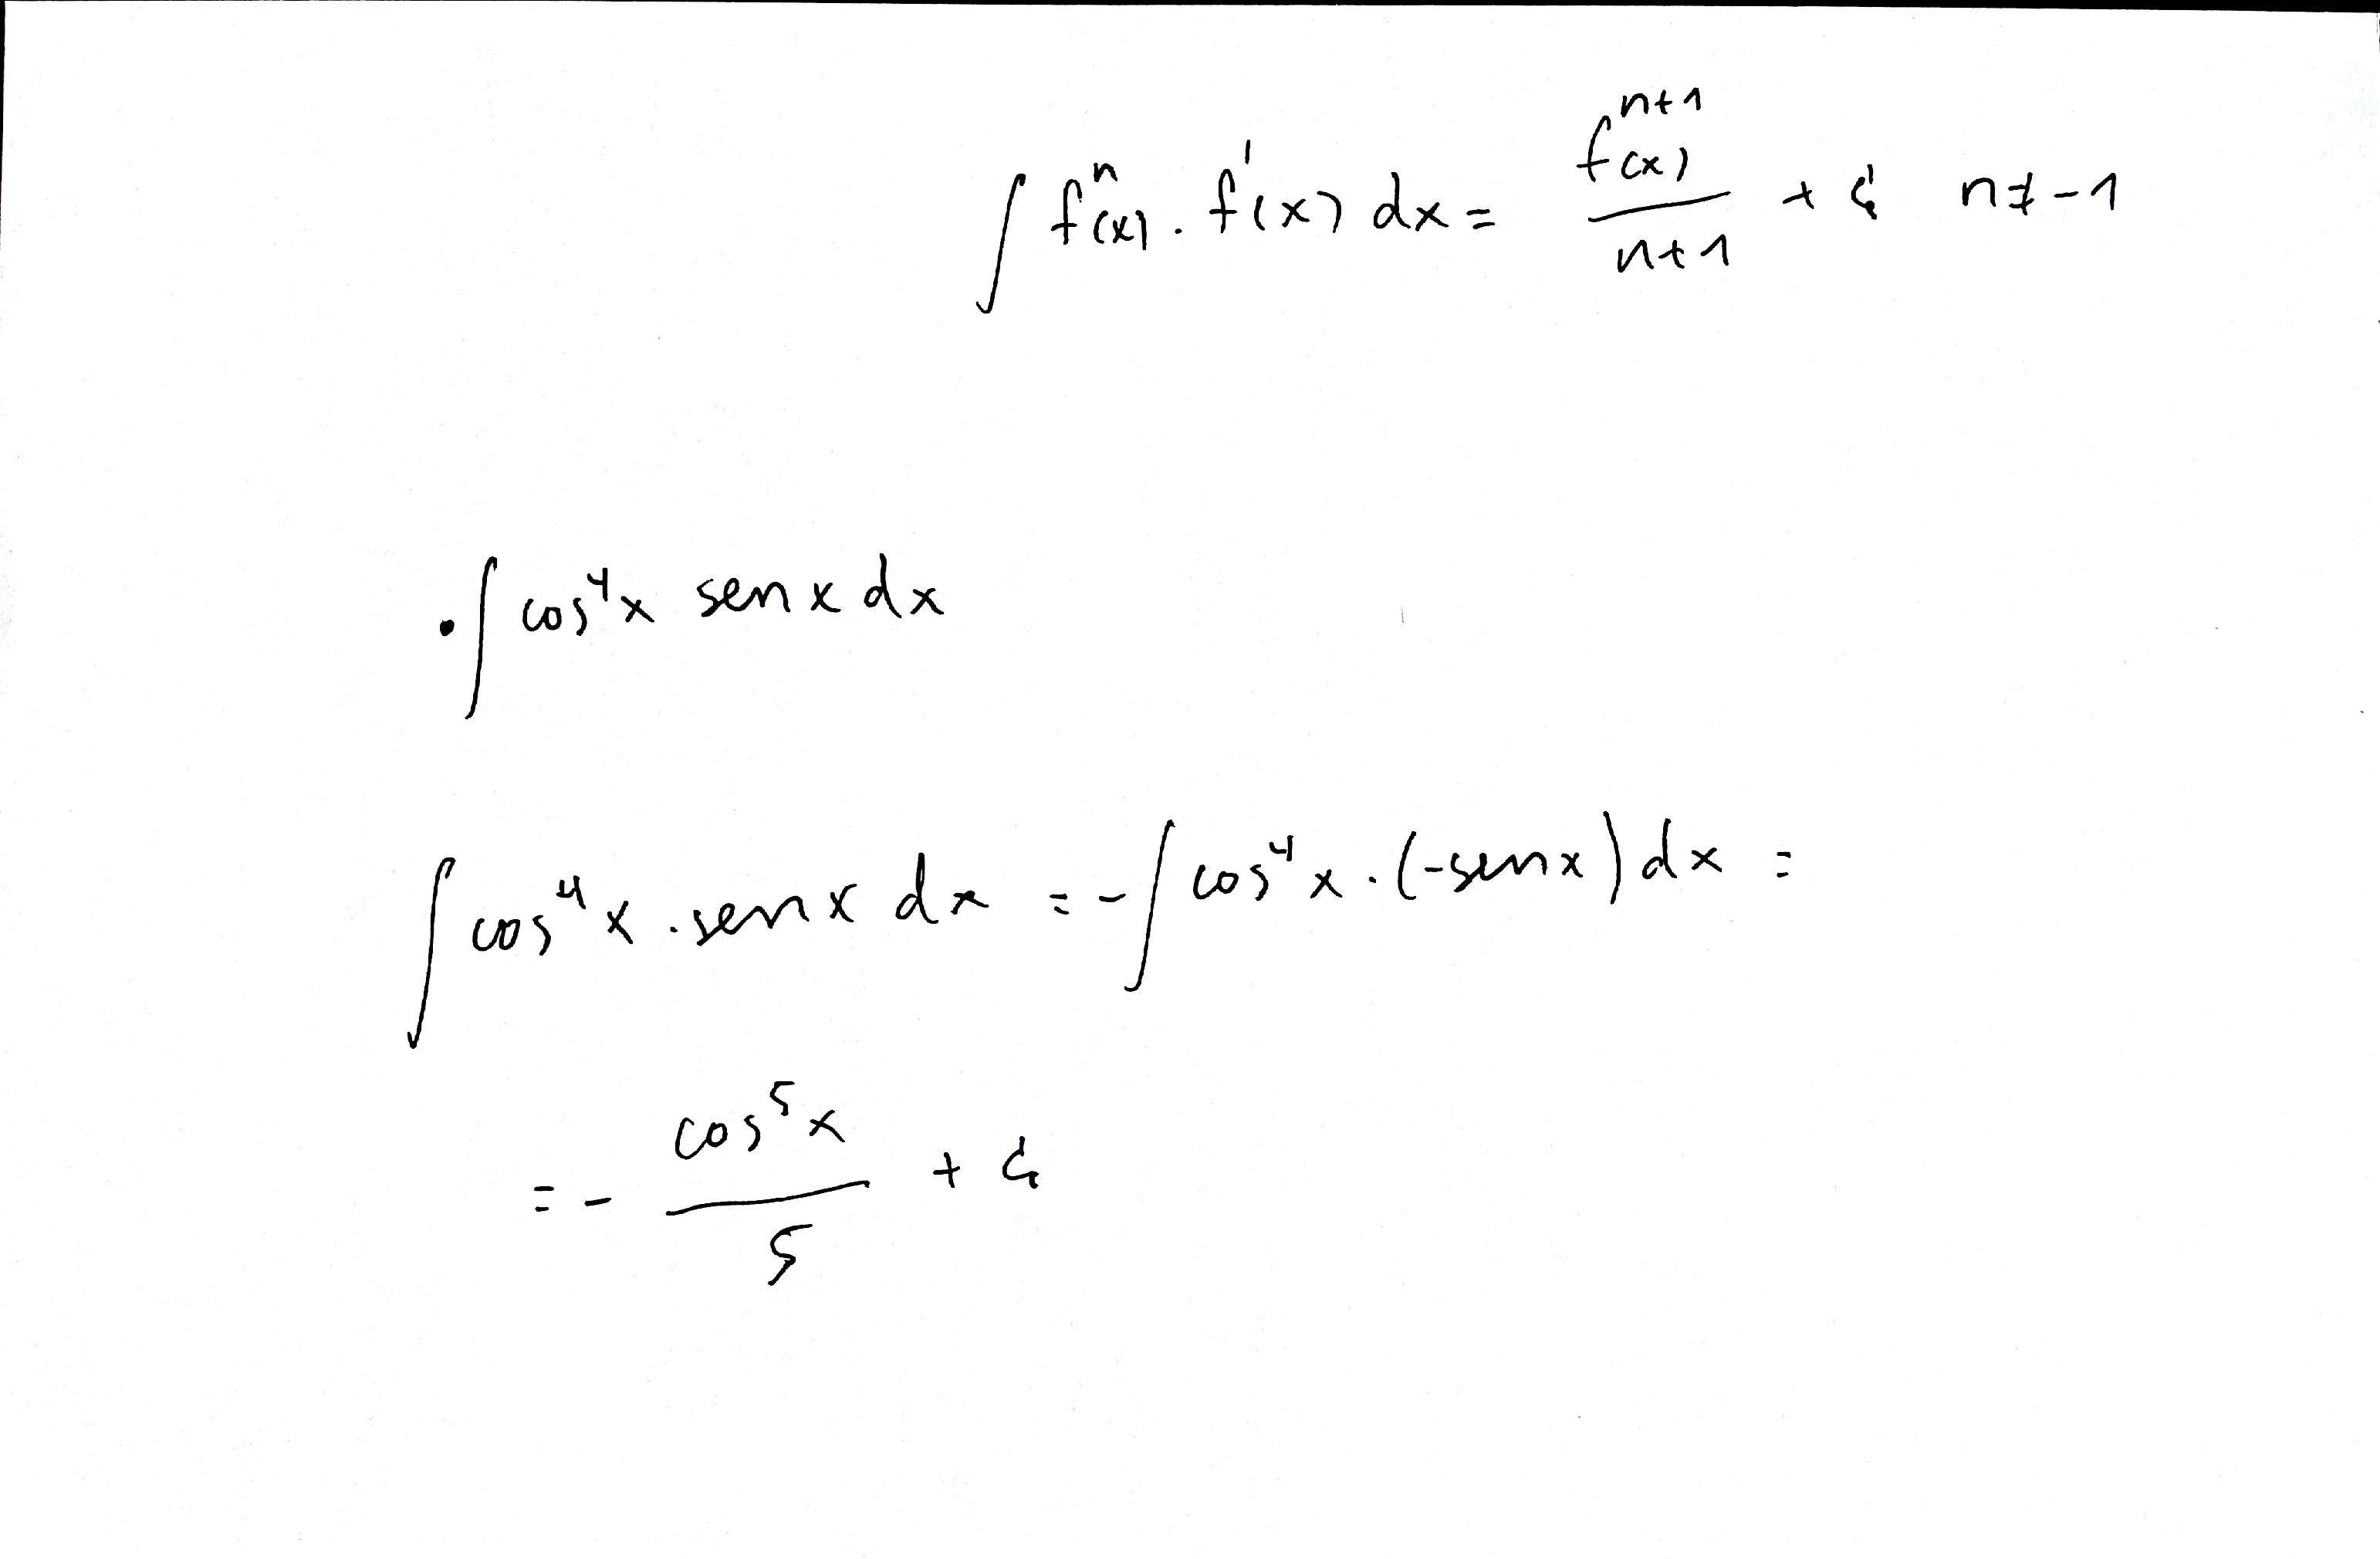 ∫ fⁿ(x) · f'(x) dx = fⁿ⁺¹(x) / (n+1) + C n ≠ -1
• ∫ cos⁴x senx dx
∫ cos⁴x · senx dx = - ∫ cos⁴x · (-senx) dx =
= - cos⁵x / 5 + C